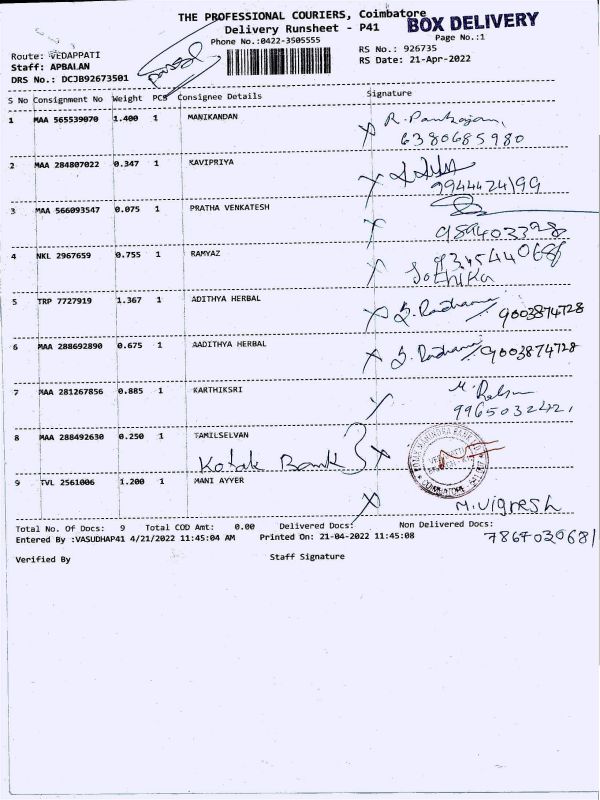 THE PROFESSIONAL COURIERS, Coimbatore
BOX DELIVERY
Delivery Runsheet - P41
Page No.:1
Phone No.:0422-3505555
RS No.: 926735
Route: VEDAPPATI
Staff: APBALAN
RS Date: 21-Apr-2022
DRS No.: DCJB92673501
S No Consignment No Weight PCS Consignee Details Signature
1 MAA 565539070 1.400 1 MANIKANDAN R. Pankajam,
6380685980
2 MAA 284807022 0.347 1 KAVIPRIYA
9944424199
3 MAA 566093547 0.075 1 PRATHA VENKATESH
4 NKL 2967659 0.755 1 RAMYAZ
Jothika
5 TRP 7727919 1.367 1 ADITHYA HERBAL 9003874728
6 MAA 288692890 0.675 1 AADITHYA HERBAL 9003874728
7 MAA 281267856 0.885 1 KARTHIKSRI
9965032421
8 MAA 288492630 0.250 1 TAMILSELVAN
Kotak Bank
9 TVL 2561006 1.200 1 MANI AYYER
M. Vignesh
Total No. Of Docs: 9 Total COD Amt: 0.00 Delivered Docs: Non Delivered Docs:
7864030681
Entered By :VASUDHAP41 4/21/2022 11:45:04 AM Printed On: 21-04-2022 11:45:08
Verified By Staff Signature